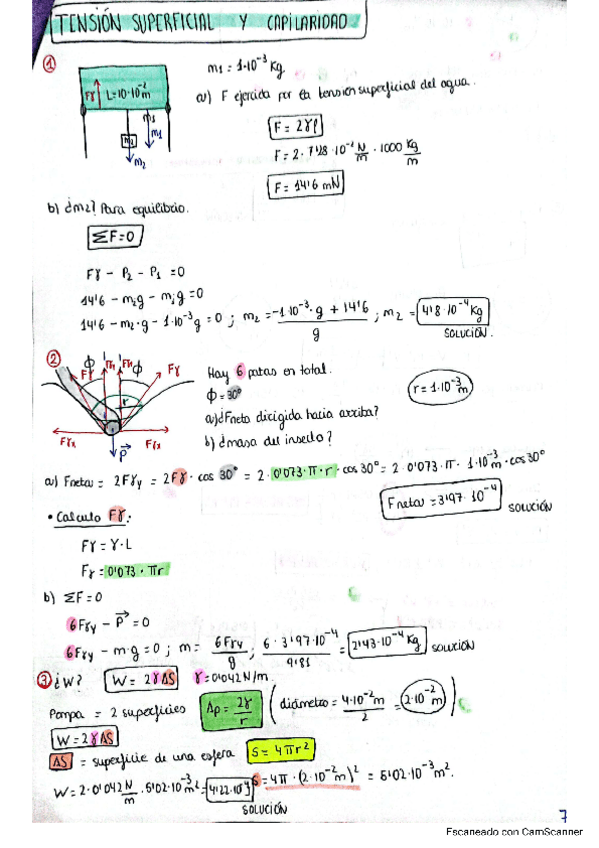 TENSIÓN SUPERFICIAL Y CAPILARIDAD
① m₁ = 1·10⁻³ Kg
Fγ L=10·10⁻²m
m₁
m₂ m₁
m₂
a) F ejercida por la tensión superficial del agua.
F = 2γl
F = 2 · 7'28 · 10⁻² N/m · 1000 Kg/m
F = 14'6 mN
b) ¿m₂? Para equilibrio.
ΣF=0
Fγ - P₂ - P₁ = 0
14'6 - m₂g - m₁g = 0
14'6 - m₂·g - 1·10⁻³g = 0 ; m₂ = (-1·10⁻³·g + 14'6)/g ; m₂ = 4'8·10⁻⁴ Kg
SOLUCIÓN.
② Hay 6 patas en total.
ϕ ϕ Fγ
Fγ r
Fγx Fγx
P
ϕ = 30°
r = 1·10⁻³m
a) ¿Fneta dirigida hacia arriba?
b) ¿masa del insecto?
a) Fneta = 2Fγy = 2Fγ · cos 30° = 2 · 0'073·π·r · cos 30° = 2 · 0'073·π· 1·10⁻³m · cos 30°
Fneta = 3'97·10⁻⁴ SOLUCIÓN
• Calculo Fγ:
Fγ = γ·L
Fγ = 0'073 · πr
b) ΣF=0
6Fγy - P = 0
6Fγy - m·g = 0 ; m = 6Fγy/g ; 6·3'97·10⁻⁴/9'81 = 2'43·10⁻⁴ Kg SOLUCIÓN
③ ¿W? W = 2γΔS γ = 0'042 N/m.
Pompa = 2 superficies Δp = 2γ/r (diámetro = 4·10⁻²m/2 = 2·10⁻²m)
W = 2γΔS
ΔS = superficie de una esfera S = 4πr²
W = 2·0'042 N/m · 5'02·10⁻³m² = 4'22·10⁻⁴J S = 4π · (2·10⁻²m)² = 5'02·10⁻³m².
SOLUCIÓN
7
Escaneado con CamScanner